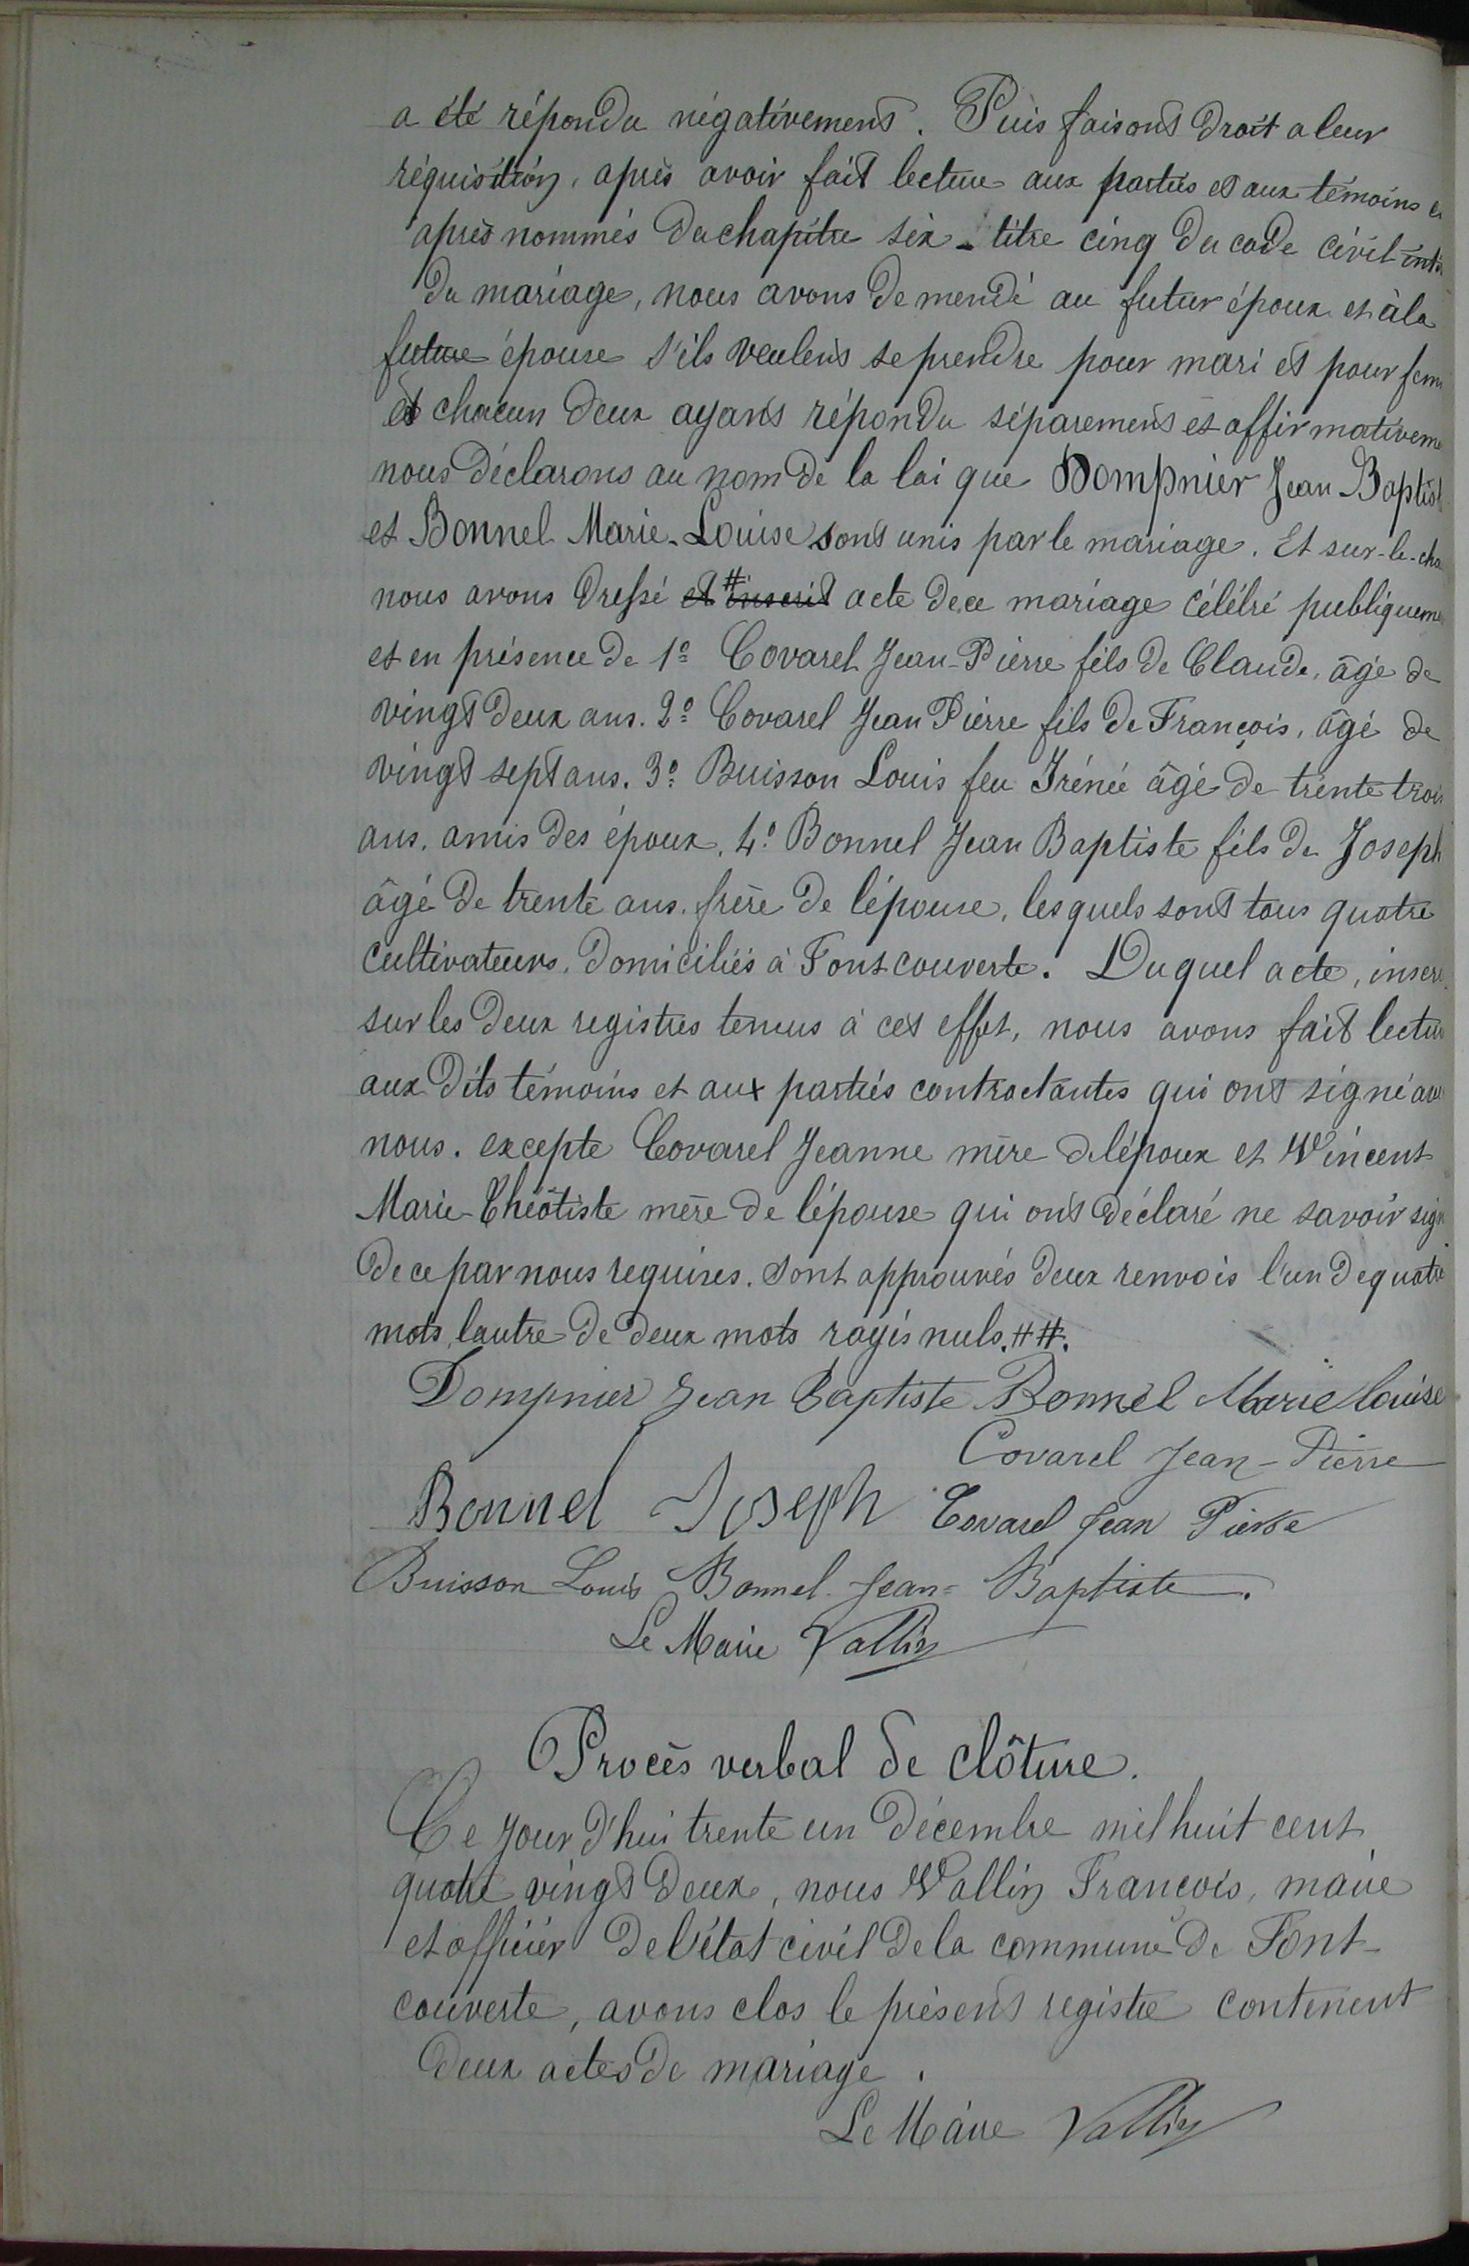 a été répondu négativement. Puis faisont droit a leur
réquisition, après avoir fait lecture aux parties et aux témoins ci
après nommés du chapitre six - titre cinq du code civil
du mariage, nous avons demendé au futur époux et à la
future épouse s'ils veulent se prendre pour mari et pour fem
et chacun deux ayant répondu séparement et affirmativeme
nous déclarons au nom de la loi que Dompnier Jean Baptist
et Bonnel Marie-Louise sont unis par le mariage. Et sur-le-cha
nous avons dressé et # inscrit acte de ce mariage célébré publiqueme
et en présence de 1º Covarel Jean-Pierre fils de Claude, âgé de
vingt deux ans. 2º Covarel Jean Pierre fils de François, âgé de
vingt sept ans. 3º Buisson Louis feu Irénée âgé de trente trois
ans, amis des époux, 4º Bonnel Jean Baptiste fils de Joseph
âgé de trente ans, frère de l'épouse, lesquels sont tous quatre
cultivateurs, domiciliés à Fontcouverte. Duquel acte, inscri
sur les deux registres tenus à cet effet, nous avons fait lectur
aux dits témoins et aux parties contractantes qui ont signé ave
nous. excepte Covarel Jeanne mère de l'époux et Vincent
Marie-Théotiste mère de l'épouse qui ont déclaré ne savoir sign
de ce par nous requises. Sont approuvés deux renvois l'un de quatre
mots, lautre de deux mots rayés nuls. ##.
Dompnier Jean Baptiste Bonnel Marie louise
Covarel Jean-Pierre
Bonnel Joseph Covarel Jean Pierre
Buisson Louis Bonnel Jean=Baptiste.
Le Maire Vallin
Procès verbal de clôture.
Ce jour d'hui trente un décembre mil huit cent
quatre vingt deux, nous Vallin François, maire
et officier de l'état civil de la commune de Font-
couverte, avons clos le présent registre contenent
deux actes de mariage.
Le Maire Vallin